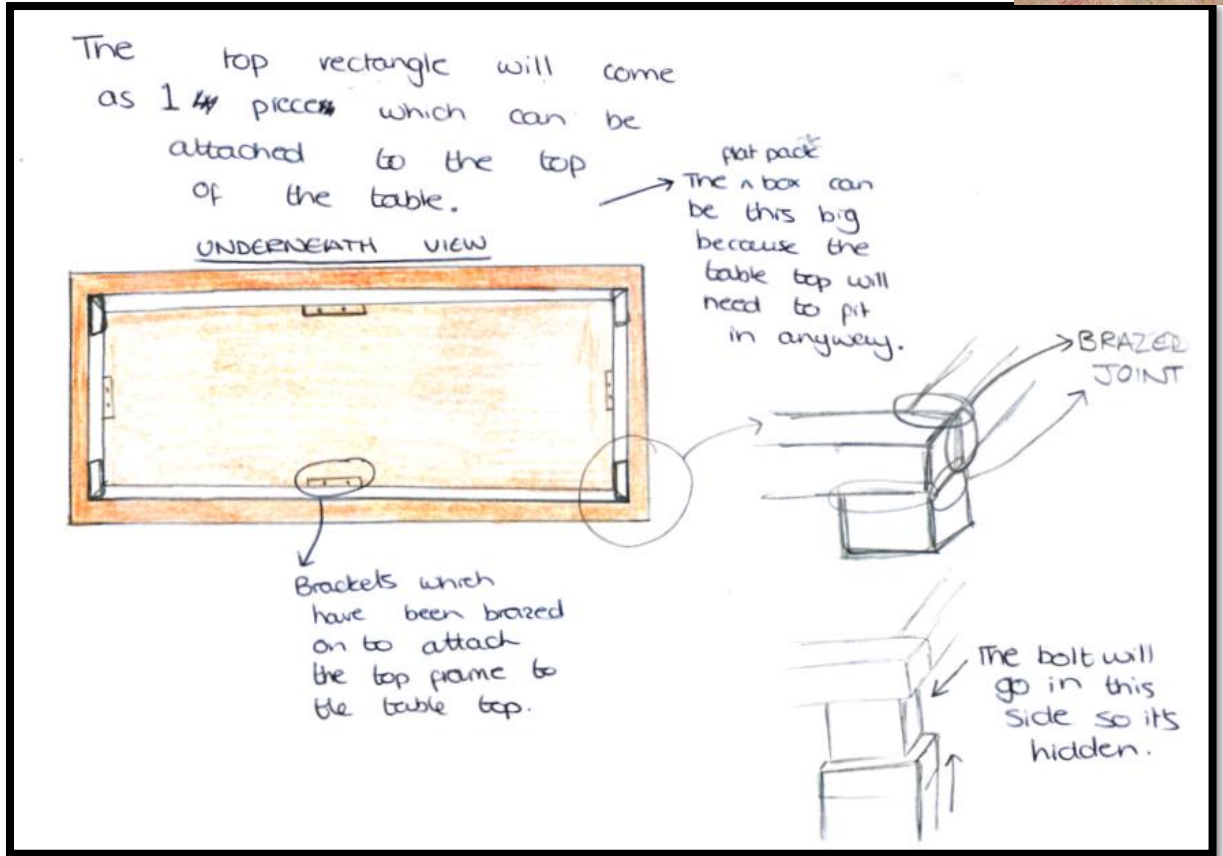 The top rectangle will come
as 1 piece which can be
attached to the top
of the table.
UNDERNEATH VIEW
flat pack
The ^ box can
be this big
because the
table top will
need to fit
in anyway.
BRAZED
JOINT
Brackets which
have been brazed
on to attach
the top frame to
the table top.
The bolt will
go in this
side so it's
hidden.